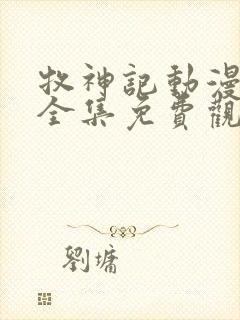 牧神記動漫
全集免費觀
劉墉